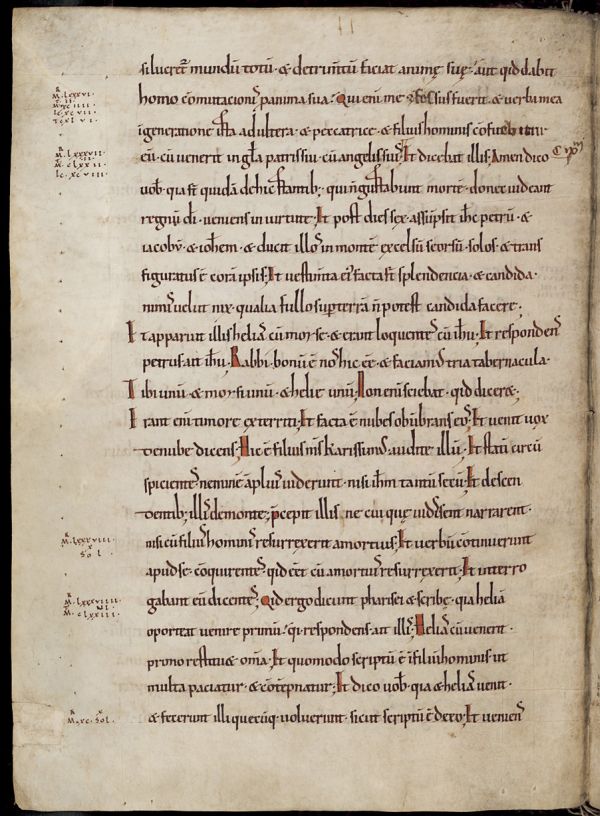 si lucret᷑ mundū totū · & detrim̄tū faciat animę suę · aut qid dabit
homo c̄mutacionis p anima sua · Qui eni me fessus fuerit & uerba mea
in generatione ista adultera · & peccatrice · & filius hominis confu
eū · cū uenerit in gła patris sui cū angelis suis; Et dicebat illis; Amen dico
uob̄ · quia st̄ quidā de hic stantib; · qui n̄ gustabunt mortē · donec uideant
regnū dī · ueniens in uirtute; Et post dies sex · assūpsit ih̄c petrū · &
iacobū · & ioh̄em · & ducit illos in montē excelsū seorsū · solos · & trans
figuratus ē corā ipsis; Et uestim̄ta ei᾽ facta st̄ splendencia · & candida ·
nimis uelut nix · qualia fullo sup terrā n̄ potest candida facere;
Et apparuit illis helias cū mōsē · & erant loquentes cū ih̄u; Et respondens
petrus · ait ih̄u · Rabbi · bonū ē nos hic eē · & faciamus tria tabernacula ·
Tibi unū · & mosi unū · & helie unū; Non eni sciebat · qid dicer& ·
Erant eni timore exterriti; Et facta ē nubes obūbrans eos; Et uenit uox
de nube dicens; Hic ē filius m̄s karissimus · audite illū; Et statī circū
spicientes neminē āplius uiderunt · nisi ih̄m tantū secū; Et descen
dentib; illis de monte; p̄cepit illis · ne cui quę uidissent narrarent ·
nisi cū filius hominis resurrexerit a mortuis; Et uerbū c̄tinuerunt
apud se · c̄quirentes · qid eēt cū a mortuis resurrexerit; Et interro
gabant eū dicentes; Qid ergo dicunt pharisei & scribę · qia heliā
oporteat uenire primū · qi respondens · ait illis; Helias cū uenerit ·
primo restitu& om̄a; Et quomodo scriptū ē in filiū hominis · ut
multa paciatur · & c̄tēpnatur; Et dico uob̄ · quia & helias uenit ·
& fecerunt illi quecūq; uoluerunt · sicut scriptū ē de eo; Et ueniens
M · lxxxvii
M · clxxii
lc · xcviii
M · lxxxviii
X
Sol
M · lxxxviiii
VI
M · clxxiii
M · xc · Sol